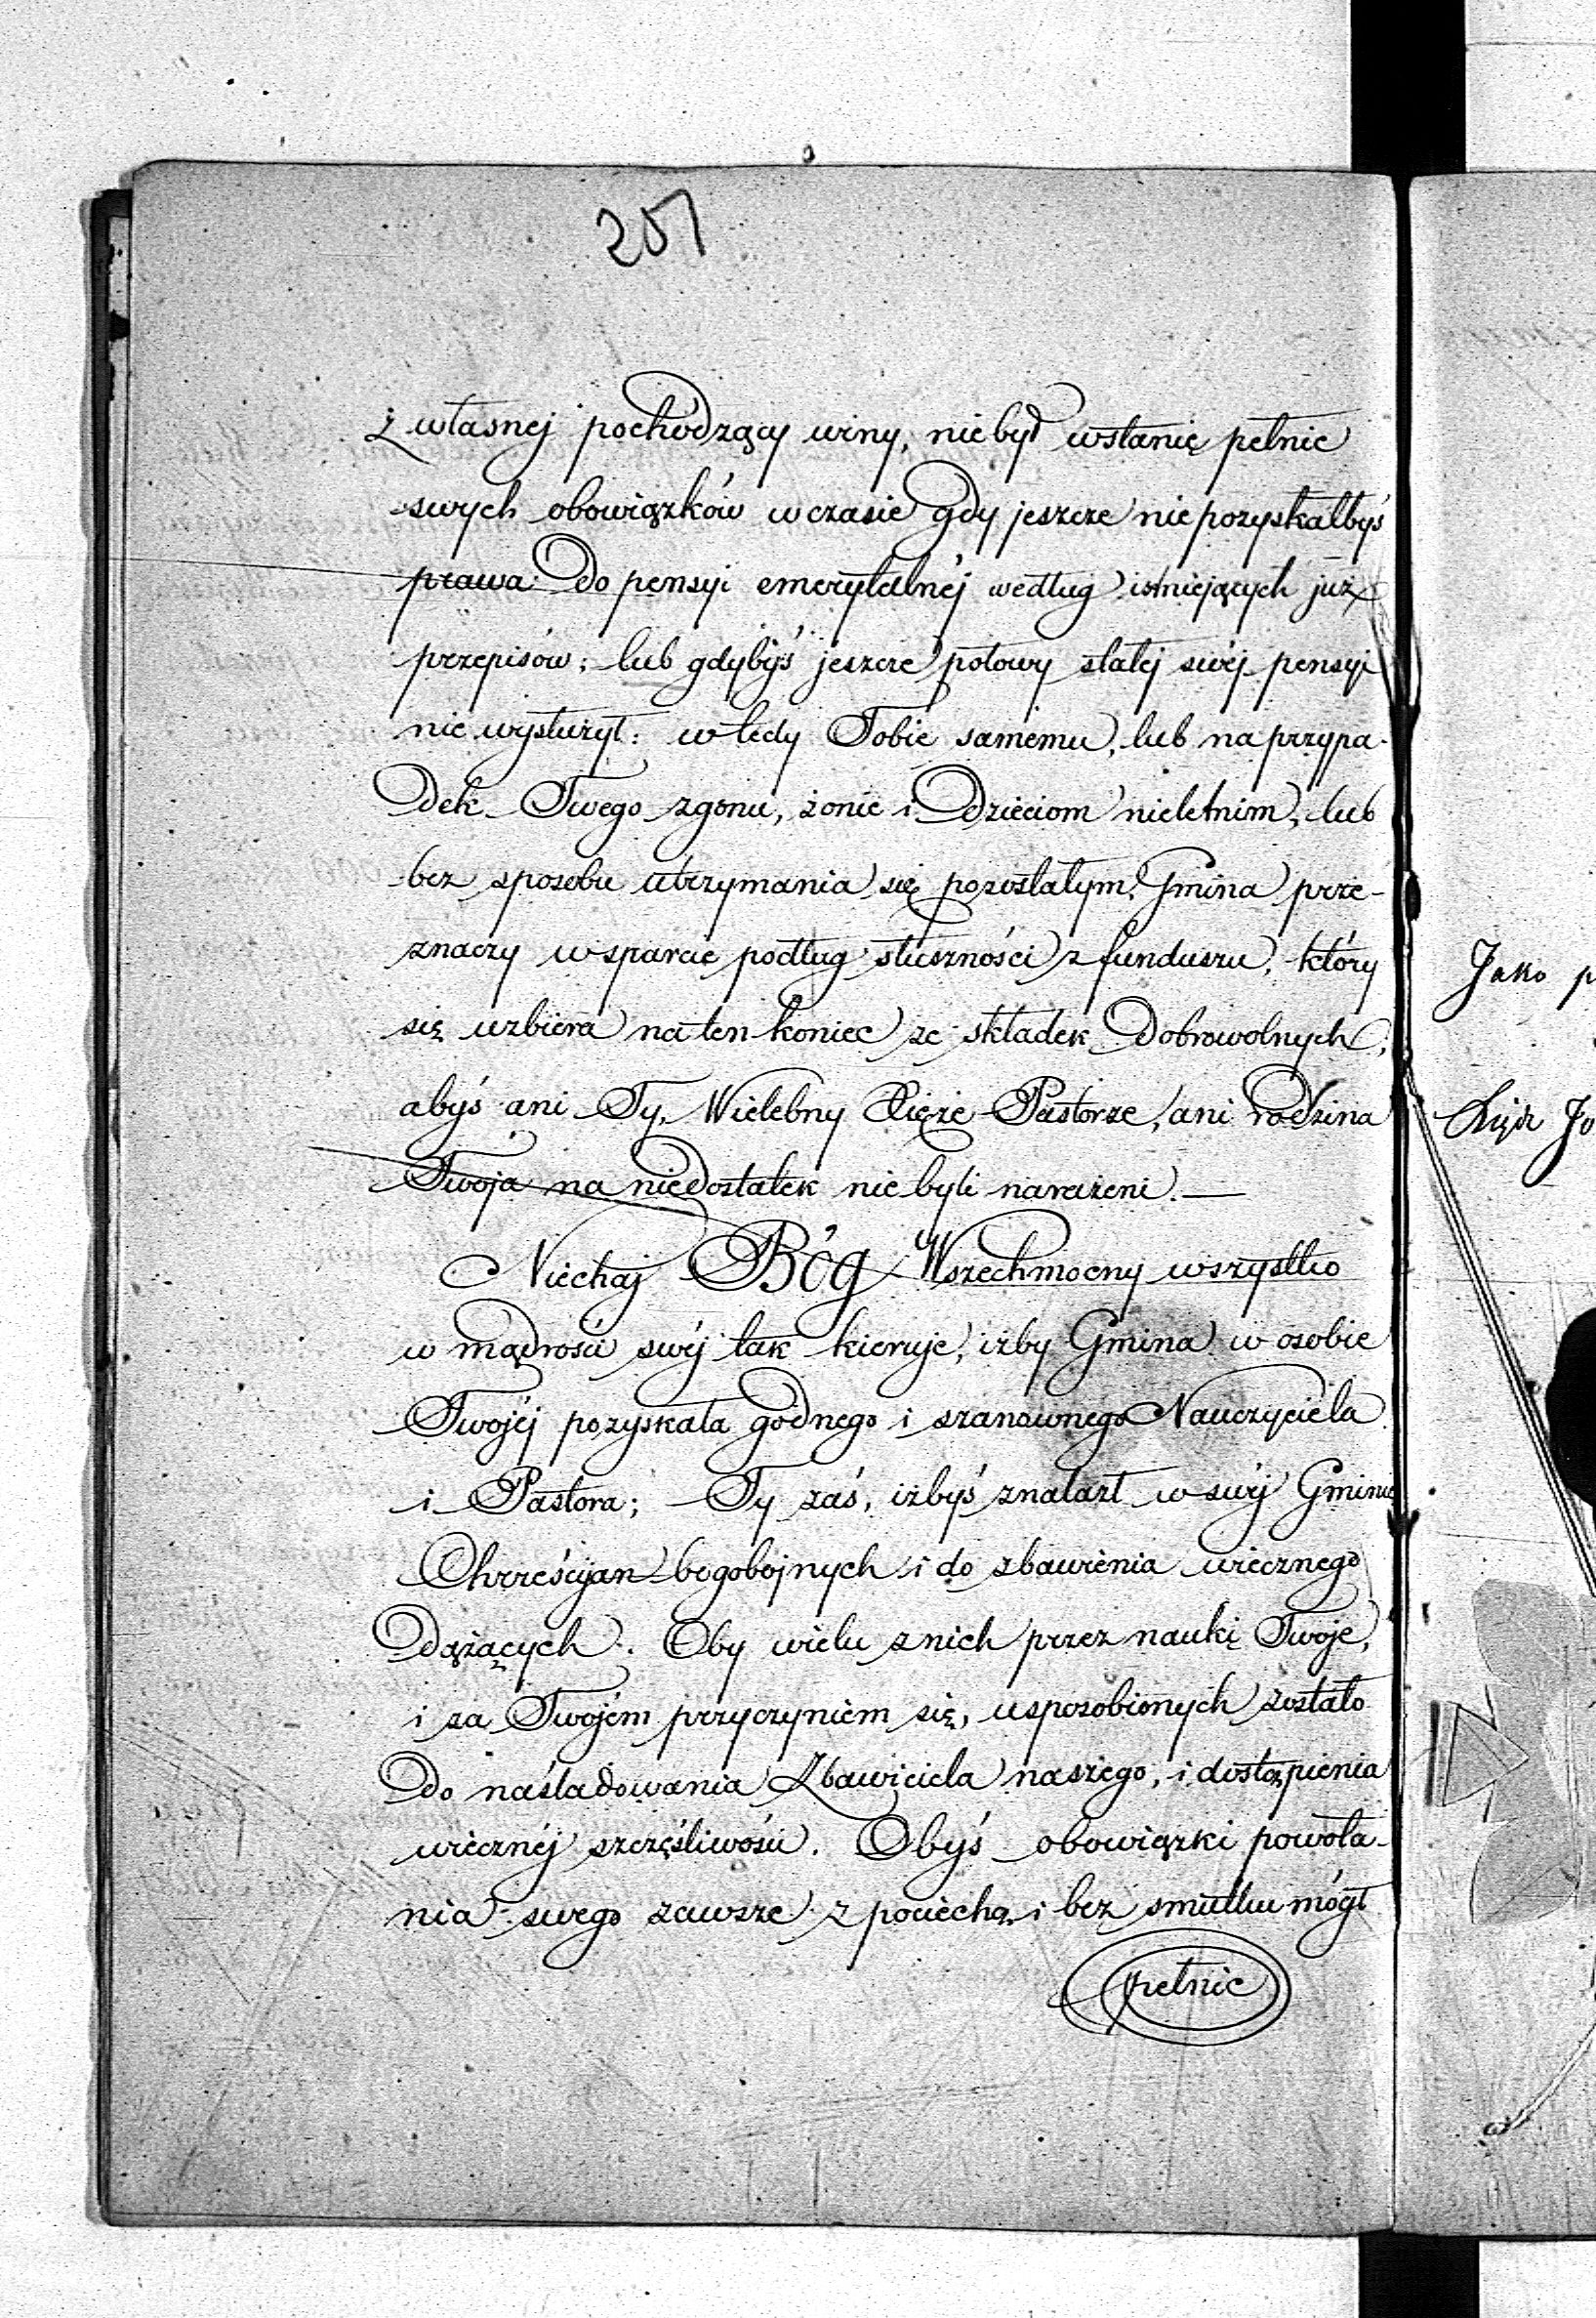 251
z własnej pochodzący winy, nie był wstanie pełnic
swych obowiązków w czasie gdy jeszcze nie pozyskałbyś
prawa do pensyi emerytalnéj według istniejących już
przepisów; lub gdybyś jeszcze połowy stałej swéj pensyi
nie wysłużył: wtedy Tobie samemu, lub na przypa-
dek Twego zgonu, żonie i dzieciom nieletnim, lub
bez sposobu utrzymania się pozostałym, Gmina prze-
znaczy wsparcie podług słuszności z funduszu, który
się uzbiera na ten koniec ze składek dobrowolnych,
abyś ani Ty, Wielebny Xięże Pastorze, ani rodzina
Twoja na niedostatek nie byli narażeni. —
Niechaj Bóg Wszechmocny wszystko
w mądrości swéj tak kieruje, iżby Gmina w osobie
Twojéj pozyskała godnego i szanownego Nauczyciela
i Pastora; Ty zaś, iżbyś znalazł w swéj Gminie
Chrześcijan bogobojnych i do zbawienia wiecznego
dążących. Oby wielu z nich przez nauki Twoje,
i za Twojém przyczyniem się, usposobionych zostało
do naśladowania Zbawiciela naszego, i dostąpienia
wiecznéj szczęśliwości. Obyś obowiązki powoła-
nia swego zawsze z pociechą i bez smutku mógł
pełnic
Jako p
Xiądz Jo